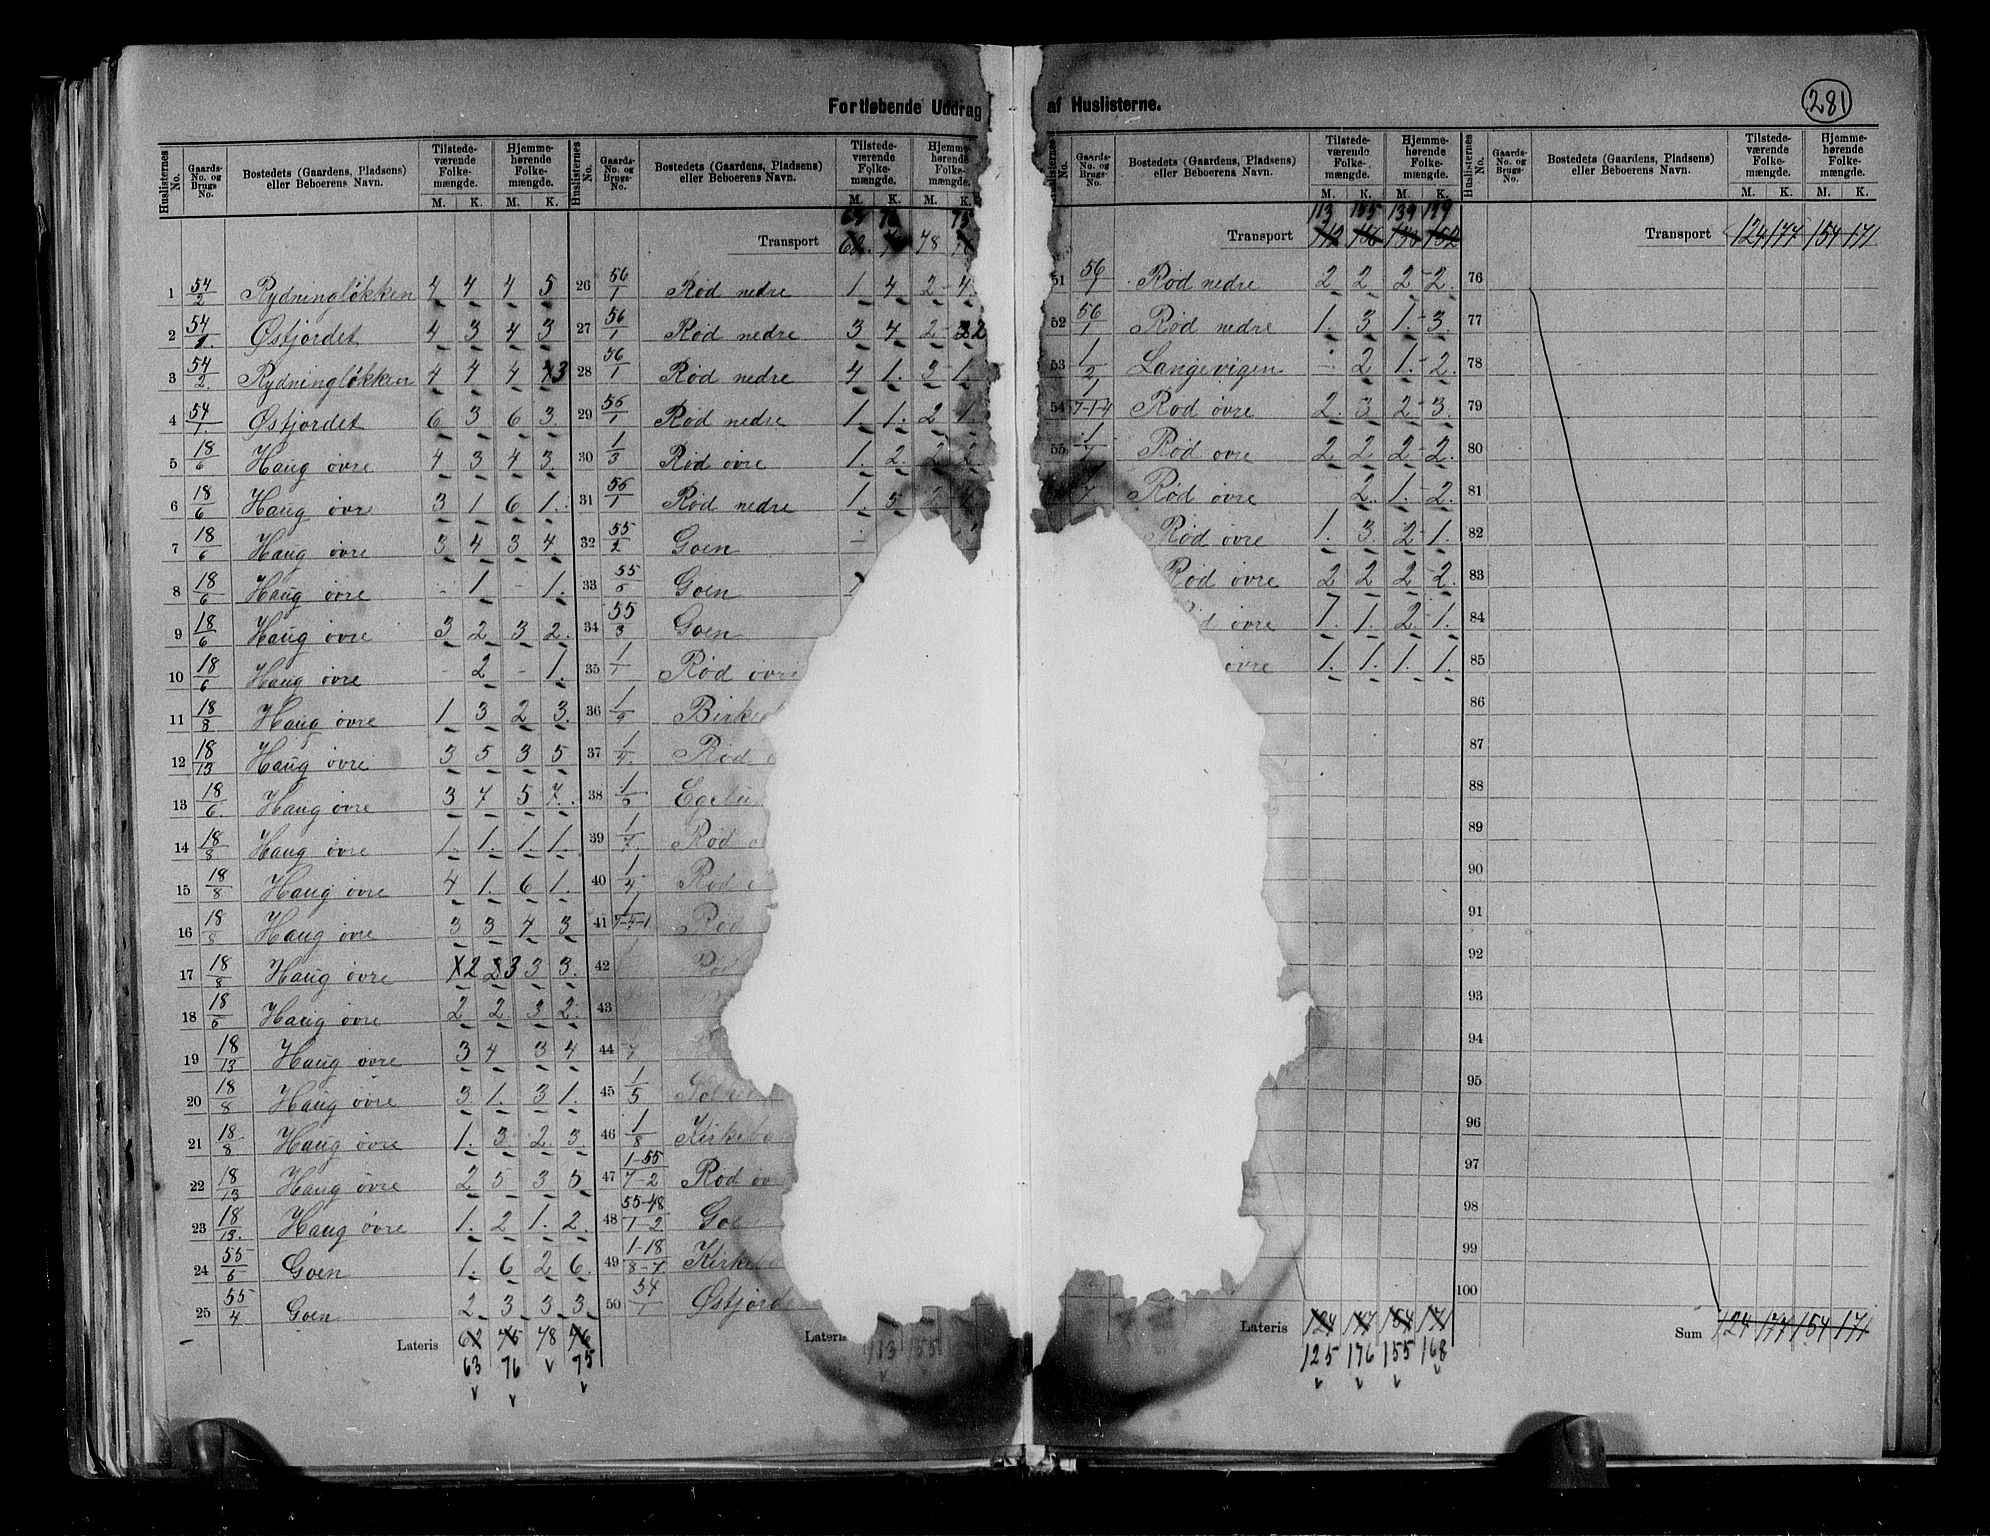 281
Fortløbende Uddrag af Huslisterne.
Huslisternes No. Gaards-No. og Brugs-No. Bostedets (Gaardens, Pladsens) eller Beboerens Navn. Tilstedeværende Folkemængde. M. K. Hjemmehørende Folkemængde. M. K.
1 54/2 Rydningløkken 4 4 4 5
2 54/1. Østjordet 4 3 4 3
3 54/2. Rydningløkken 4 4 4 3
4 54/1. Østjordet 6 3 6 3.
5 18/6 Haug øvre 4 3 4 3.
6 18/6 Haug øvre 3 1 6 1.
7 18/6 Haug øvre 3 4 3 4
8 18/6 Haug øvre - 1 - 1.
9 18/6 Haug øvre 3 2 3 2.
10 18/6 Haug øvre - 2 - 1.
11 18/8 Haug øvre 1 3 2 3.
12 18/13 Haug øvre 3 5 3 5
13 18/6. Haug øvre 3 7 5 7.
14 18/8 Haug øvre 1. 1. 1. 1.
15 18/8 Haug øvre 4 1. 6 1.
16 18/8 Haug øvre 3 3 4 3
17 18/8 Haug øvre 2 3 3 3.
18 18/6 Haug øvre 2 2 3 2.
19 18/13 Haug øvre 3 4 3 4
20 18/8 Haug øvre 3 1. 3 1.
21 18/8 Haug øvre 1. 3. 2. 3.
22 18/13 Haug øvre 2 5 3 5
23 18/13. Haug øvre 1. 2 1. 2.
24 55/6 Goen 1. 6 2 6.
25 55/4 Goen 2 3 3 3.
Lateris 62 75 48 76
63 76 75
Huslisternes No. Gaards-No. og Brugs-No. Bostedets (Gaardens, Pladsens) eller Beboerens Navn. Tilstedeværende Folkemængde. M. K. Hjemmehørende Folkemængde. M. K.
Transport 62. 48
75
26 56/1 Rød nedre 1 4 2 4.
27 56/1 Rød nedre 3 4 2 2
28 56/1 Rød nedre 4 1. 3 1
29 56/1 Rød nedre 1 1. 2 1.
30 1/3 Rød øvre 1. 2 2 2
31 56/1 Rød nedre 1 5
32 55/2 Goen -
33 55/5 Goen
34 55/3 Goen
35 1/1 Rød øvre
36 1/9 Birke
37 1/4. Rød
38 1/5 Egelu
39 1/7. Rød
40 1/4 Rød
41 Rød
42 Rød
43
44 7
45 1/5
46 1/8 Kirkeba
47 1-55/7-2 Rød øv
48 55-48/1-2 Goe
49 1-18/8-7 Kirkeba
50 54/1 Østjord
Lateris
113 155
No. Gaards-No. og Brugs-No. Bostedets (Gaardens, Pladsens) eller Beboerens Navn. Tilstedeværende Folkemængde. M. K. Hjemmehørende Folkemængde. M. K.
113 155 139 149
Transport 112 156 138 152
51 56/1 Rød nedre 2 2 2 2.
52 56/1 Rød nedre 1. 3 1. 3.
53 1/2 Langevigen - 2 1. 2.
54 1/7-1-4 Rød øvre 2. 3 2 3.
55 1/7 Rød øvre 2 2 2 2.
7. Rød øvre 2. 1. 2.
Rød øvre 1. 3. 2 1.
Rød øvre 2 2 2 2.
øvre 1. 1. 2. 1.
øvre 1. 1. 1. 1.
Lateris 124 177 154 171
125 176 155 168
Huslisternes No. Gaards-No. og Brugs-No. Bostedets (Gaardens, Pladsens) eller Beboerens Navn. Tilstedeværende Folkemængde. M. K. Hjemmehørende Folkemængde. M. K.
Transport 124 177 154 171
76
77
78
79
80
81
82
83
84
85
86
87
88
89
90
91
92
93
94
95
96
97
98
99
100
Sum 124 177 154 171